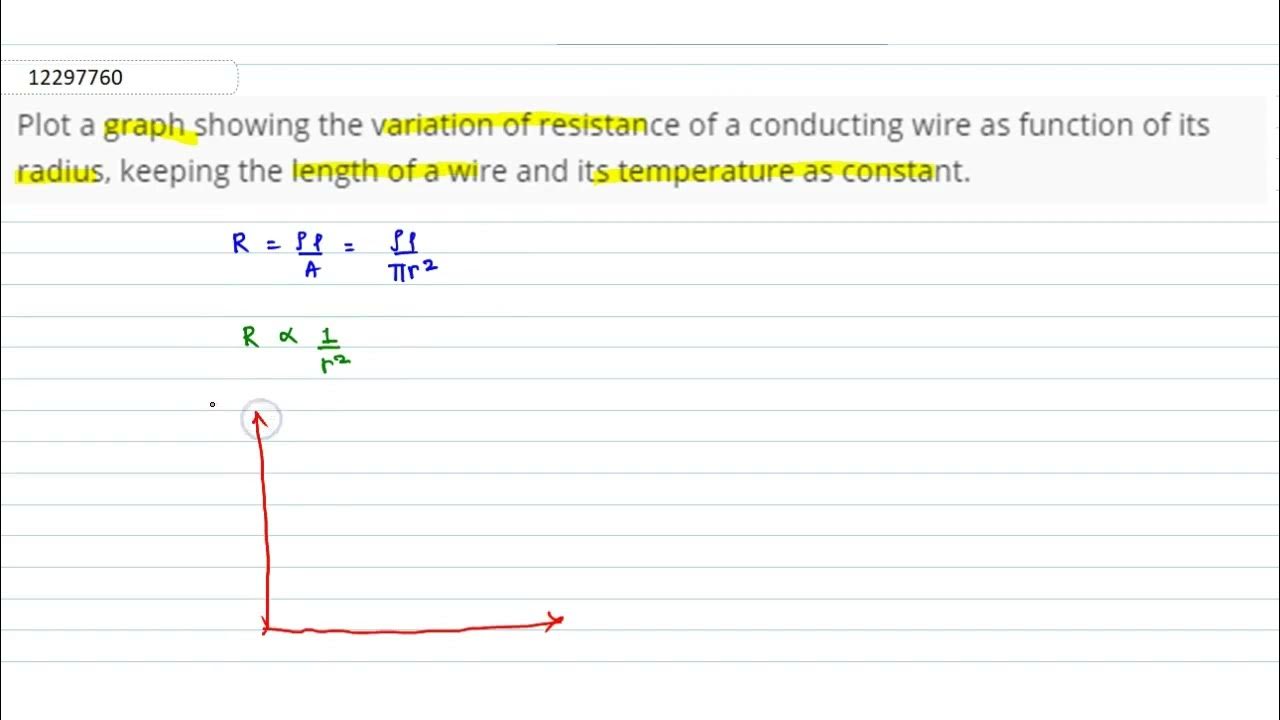 12297760
Plot a graph showing the variation of resistance of a conducting wire as function of its
radius, keeping the length of a wire and its temperature as constant.
R = ρl/A = ρl/πr²
R ∝ 1/r²